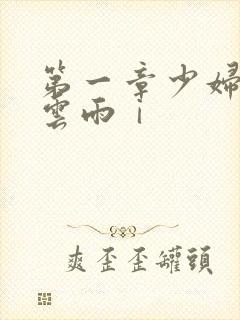 第一章少婦
雲雨｜
爽歪歪罐頭